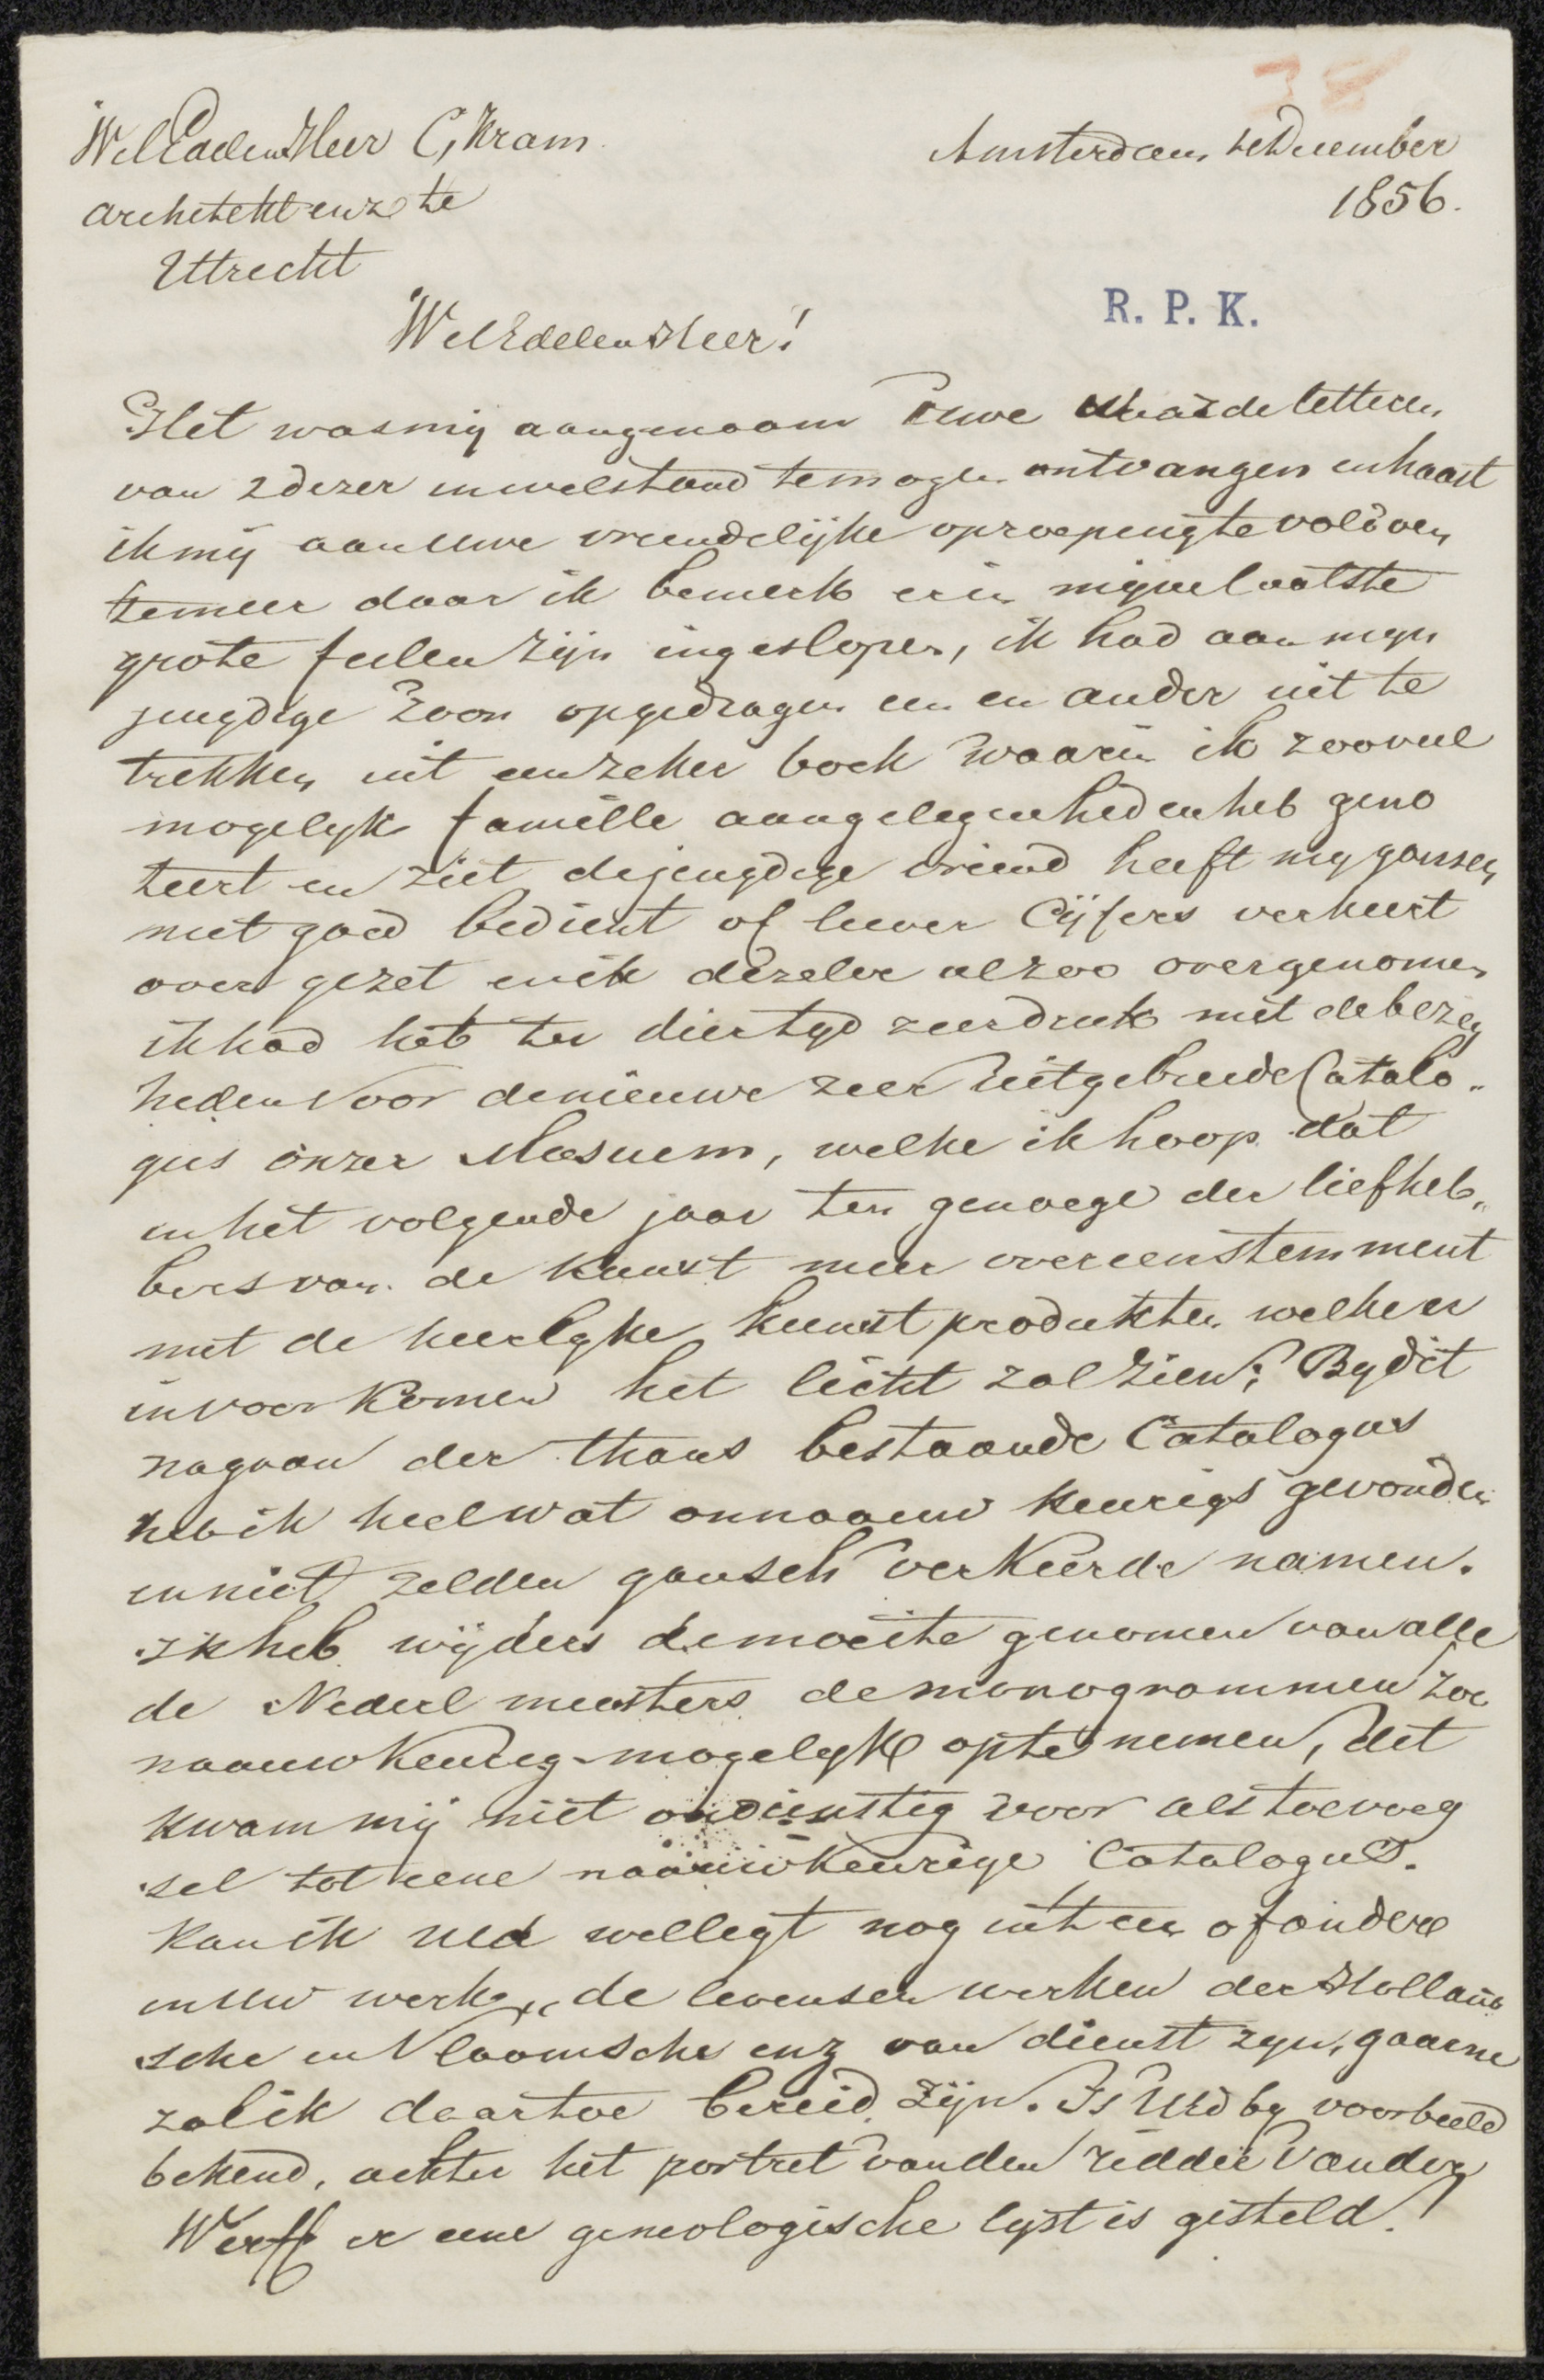 38
WelEdelenHeer C, Kram
Amsterdam, December
architekt enz te
1856.
Uttrecht
R. P. K.
WelEdelen Heer!
Het was mij aangenaam Uwe waarde letteren
van 2 dezer in welstand te mogen ontvangen en haast
ik mij aan uwe vriendelijke oproeping te voldoen
temeer daar ik bemerk er in mijne laatste
grote feilen zijn ingeslopen, ik had aan mijn
jeugdige Zoon opgedragen een en ander uit te
trekken uit een zeker boek waarin ik zooveel
mogelyk famille aangelegenheden heb geno
teert en ziet de jeugdige vriend heeft my gansch
niet goed bedient of liever Cijfers verkeert
over gezet en ik dezelve alzoo overgenomen
ik had het ter dier tyd zeer druk met de bezig
heden voor de nieuwe zeer uitgebreide Catalo„
gus onzer Meseum, welke ik hoop dat
in het volgende jaar ten genoege der liefheb„
bers van de kunst meer overeenstemment
met de heerlyke kunst produkten welke er
in voor komen het licht zal zien; By dit
nagaan der thans bestaande Catalogus
heb ik heel wat onnaauw keurigs gevonden
en niet zelden gansch verkeerde namen.
Ik heb wijders de moeite genomen van alle
de Nederl meesters de monogrammen zoo
naauwkeurig mogelyk opte nemen, dit
kwam mij niet ondienstig voor als toevoeg
sel tot eene naauwkeurige Catalogus.
Kan ik Ued wellegt nog in het een of andere
in uw werk, „de levens en werken der Holland
sche en Vlaamsche enz van dienst zyn, gaarne
zal ik daartoe bereid zijn. Is UEd by voorbeeld
bekend, achter het portret van den ridder Vander
Werff er eene geneologische lyst is gesteld!